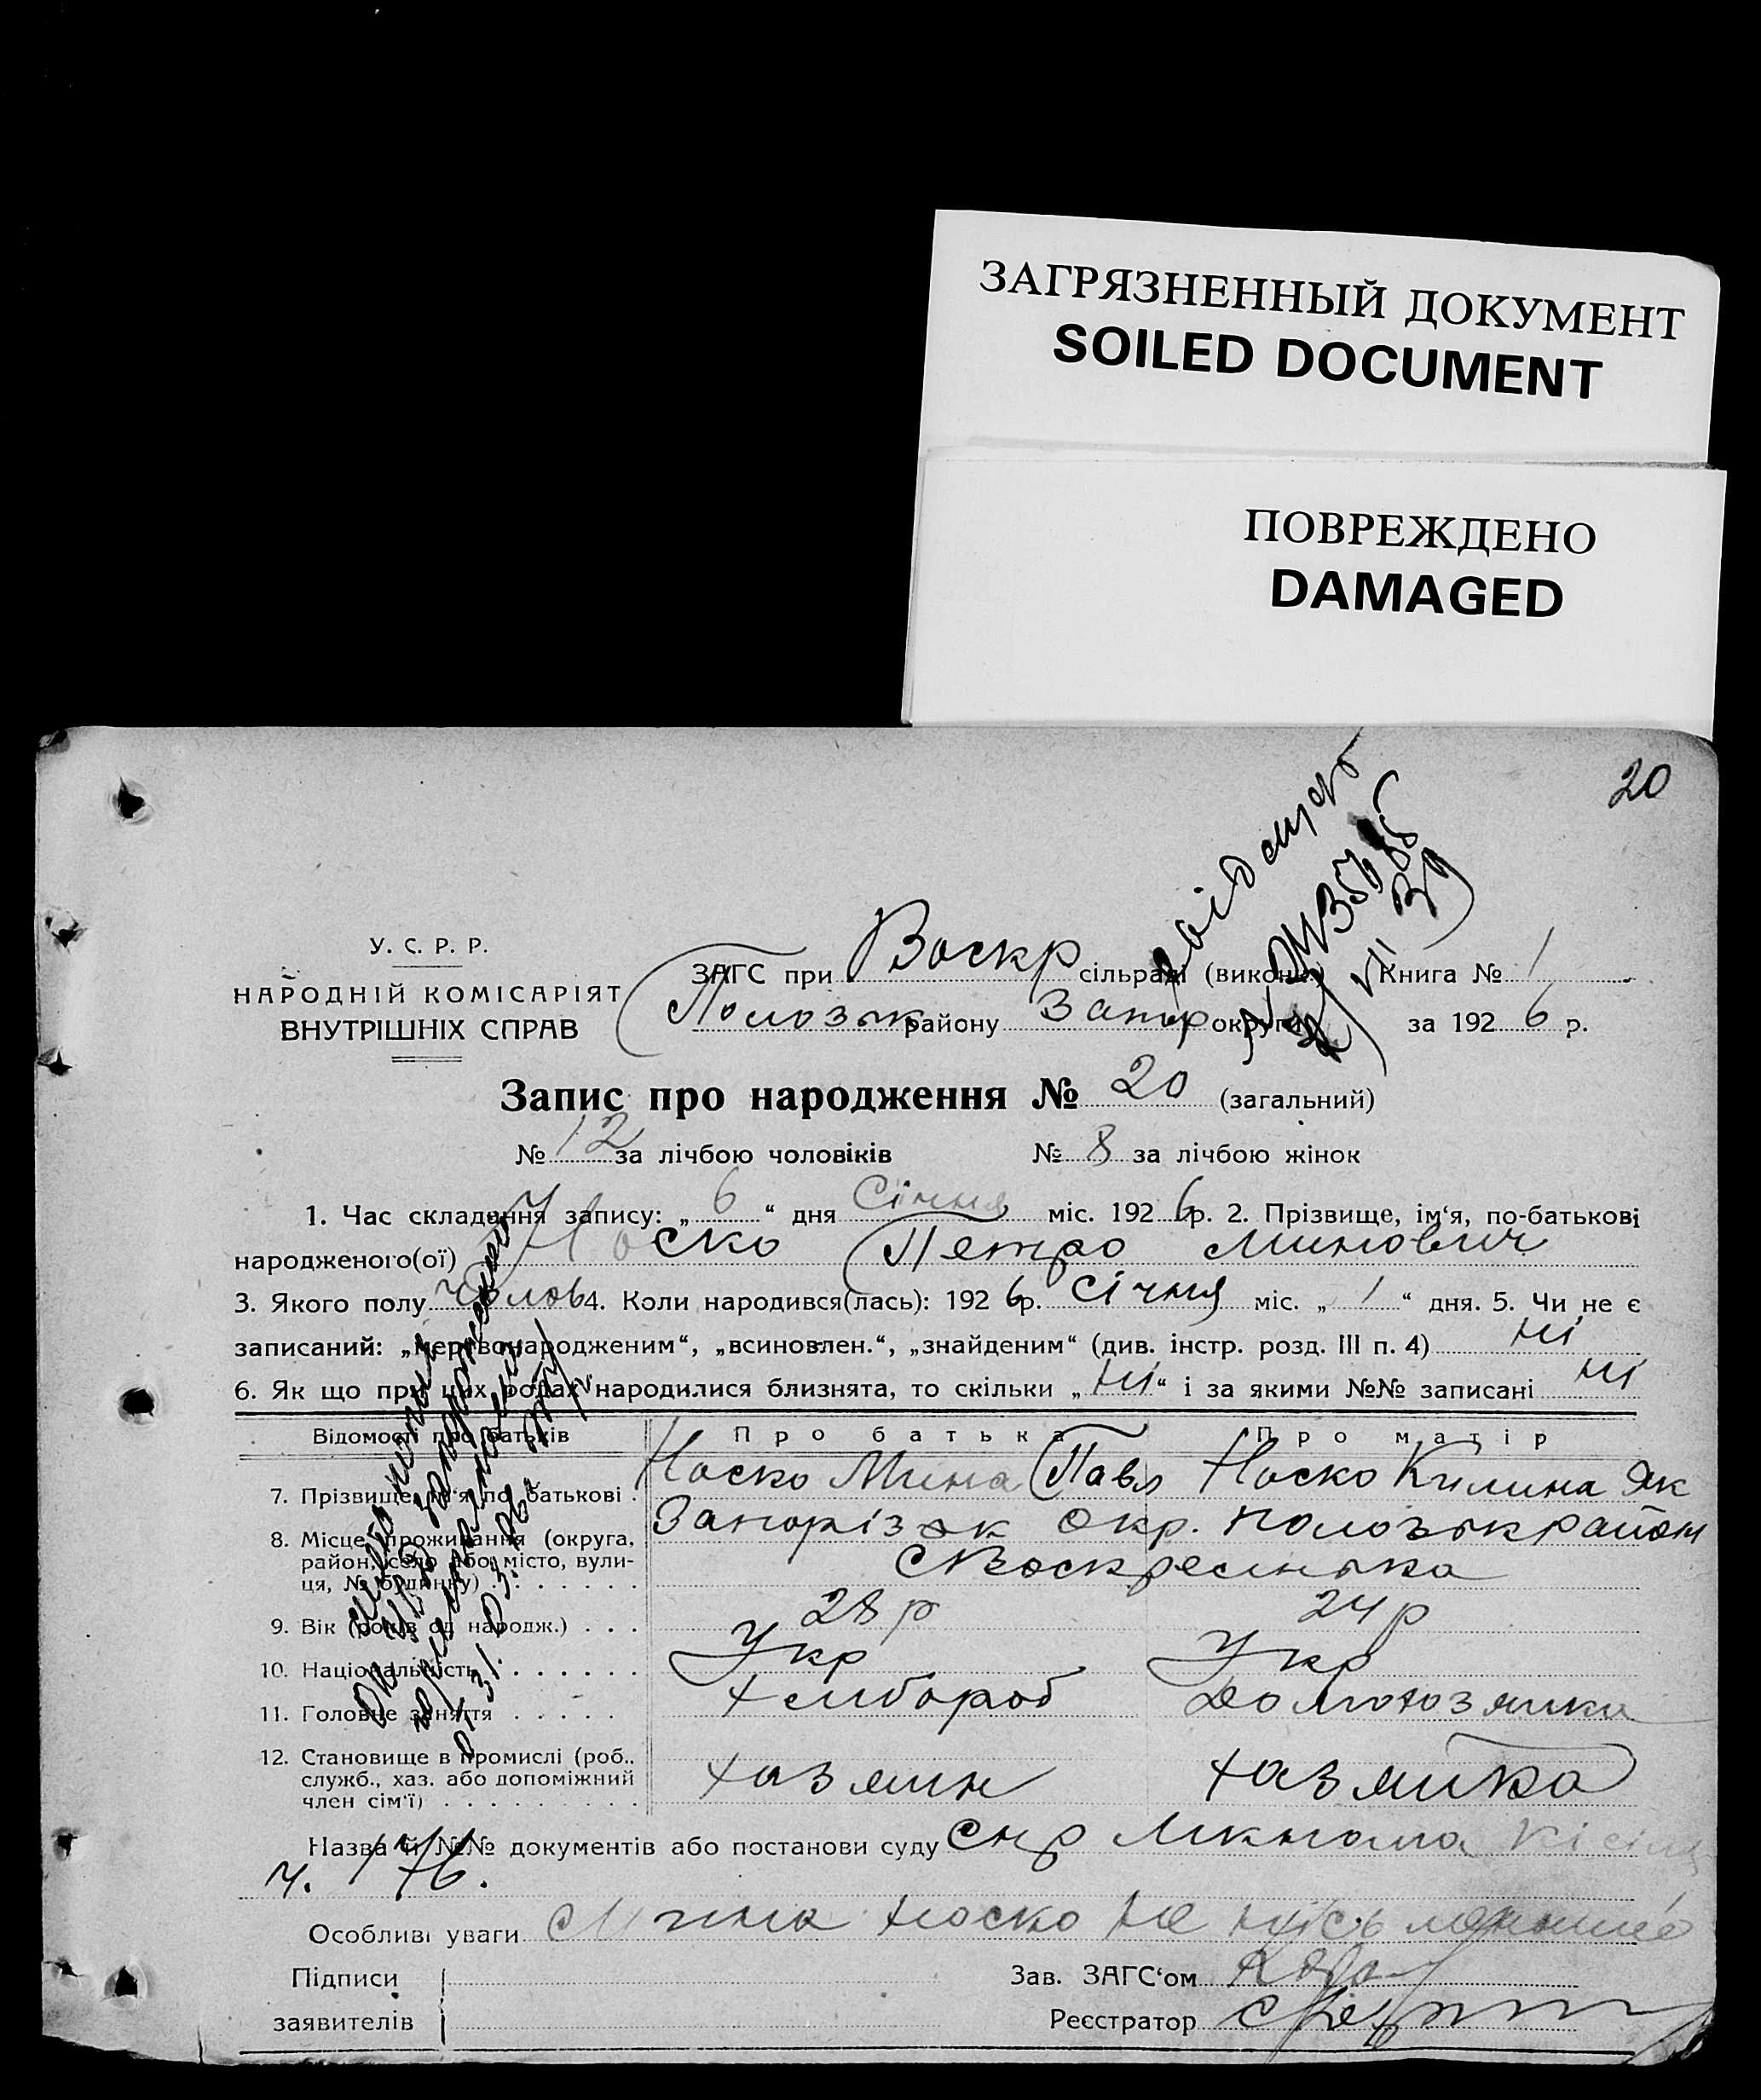 ЗАГРЯЗНЕННЫЙ ДОКУМЕНТ
SOILED DOCUMENT
ПОВРЕЖДЕНО
DAMAGED
20
У. С. Р. Р.
НАРОДНІЙ КОМІСАРІЯТ
ВНУТРІШНІХ СПРАВ
ЗАГС при Воскр сільраді (виконк.) Книга № 1
Полозьк району Запор округи за 1926 р.
Запис про народження № 20 (загальний)
№ 12 за лічбою чоловіків № 8 за лічбою жінок
1. Час складання запису: „6“ дня Січня міс. 1926 р. 2. Прізвище, ім‘я, по-батькові
народженого(ої) Носко Петро Минович
3. Якого полу чолов 4. Коли народився(лась): 1926 р. Січня міс. „1“ дня. 5. Чи не є
записаний: „мертвонародженим“, „всиновлен.“, „знайденим“ (див. інстр. розд. III п. 4) ні
6. Як що при цих родах народилися близнята, то скільки „ні“ і за якими №№ записані ні
Відомості про батьків Про батька Про матір
7. Прізвище, ім‘я по батькові . Носко Мина Павл Носко Килина Як
8. Місце проживання (округа, район, село або місто, вулиця, № будинку) . . . . . . . Запорізьк Окр. Полозьк район
С Воскресенька
9. Вік (років од народж.) . . . 28 р 24 р
10. Національність . . . . . . . Укр Укр
11. Головне заняття . . . . . Хлібороб Домохозяйка
12. Становище в промислі (роб., служб., хаз. або допоміжний член сім‘ї) . . . . . . . . . хазяин хазяйка
Назва й №№ документів або постанови суду
ч. 176.
Особливі уваги Носко не
Підписи
заявителів
Зав. ЗАГС‘ом
Реєстратор